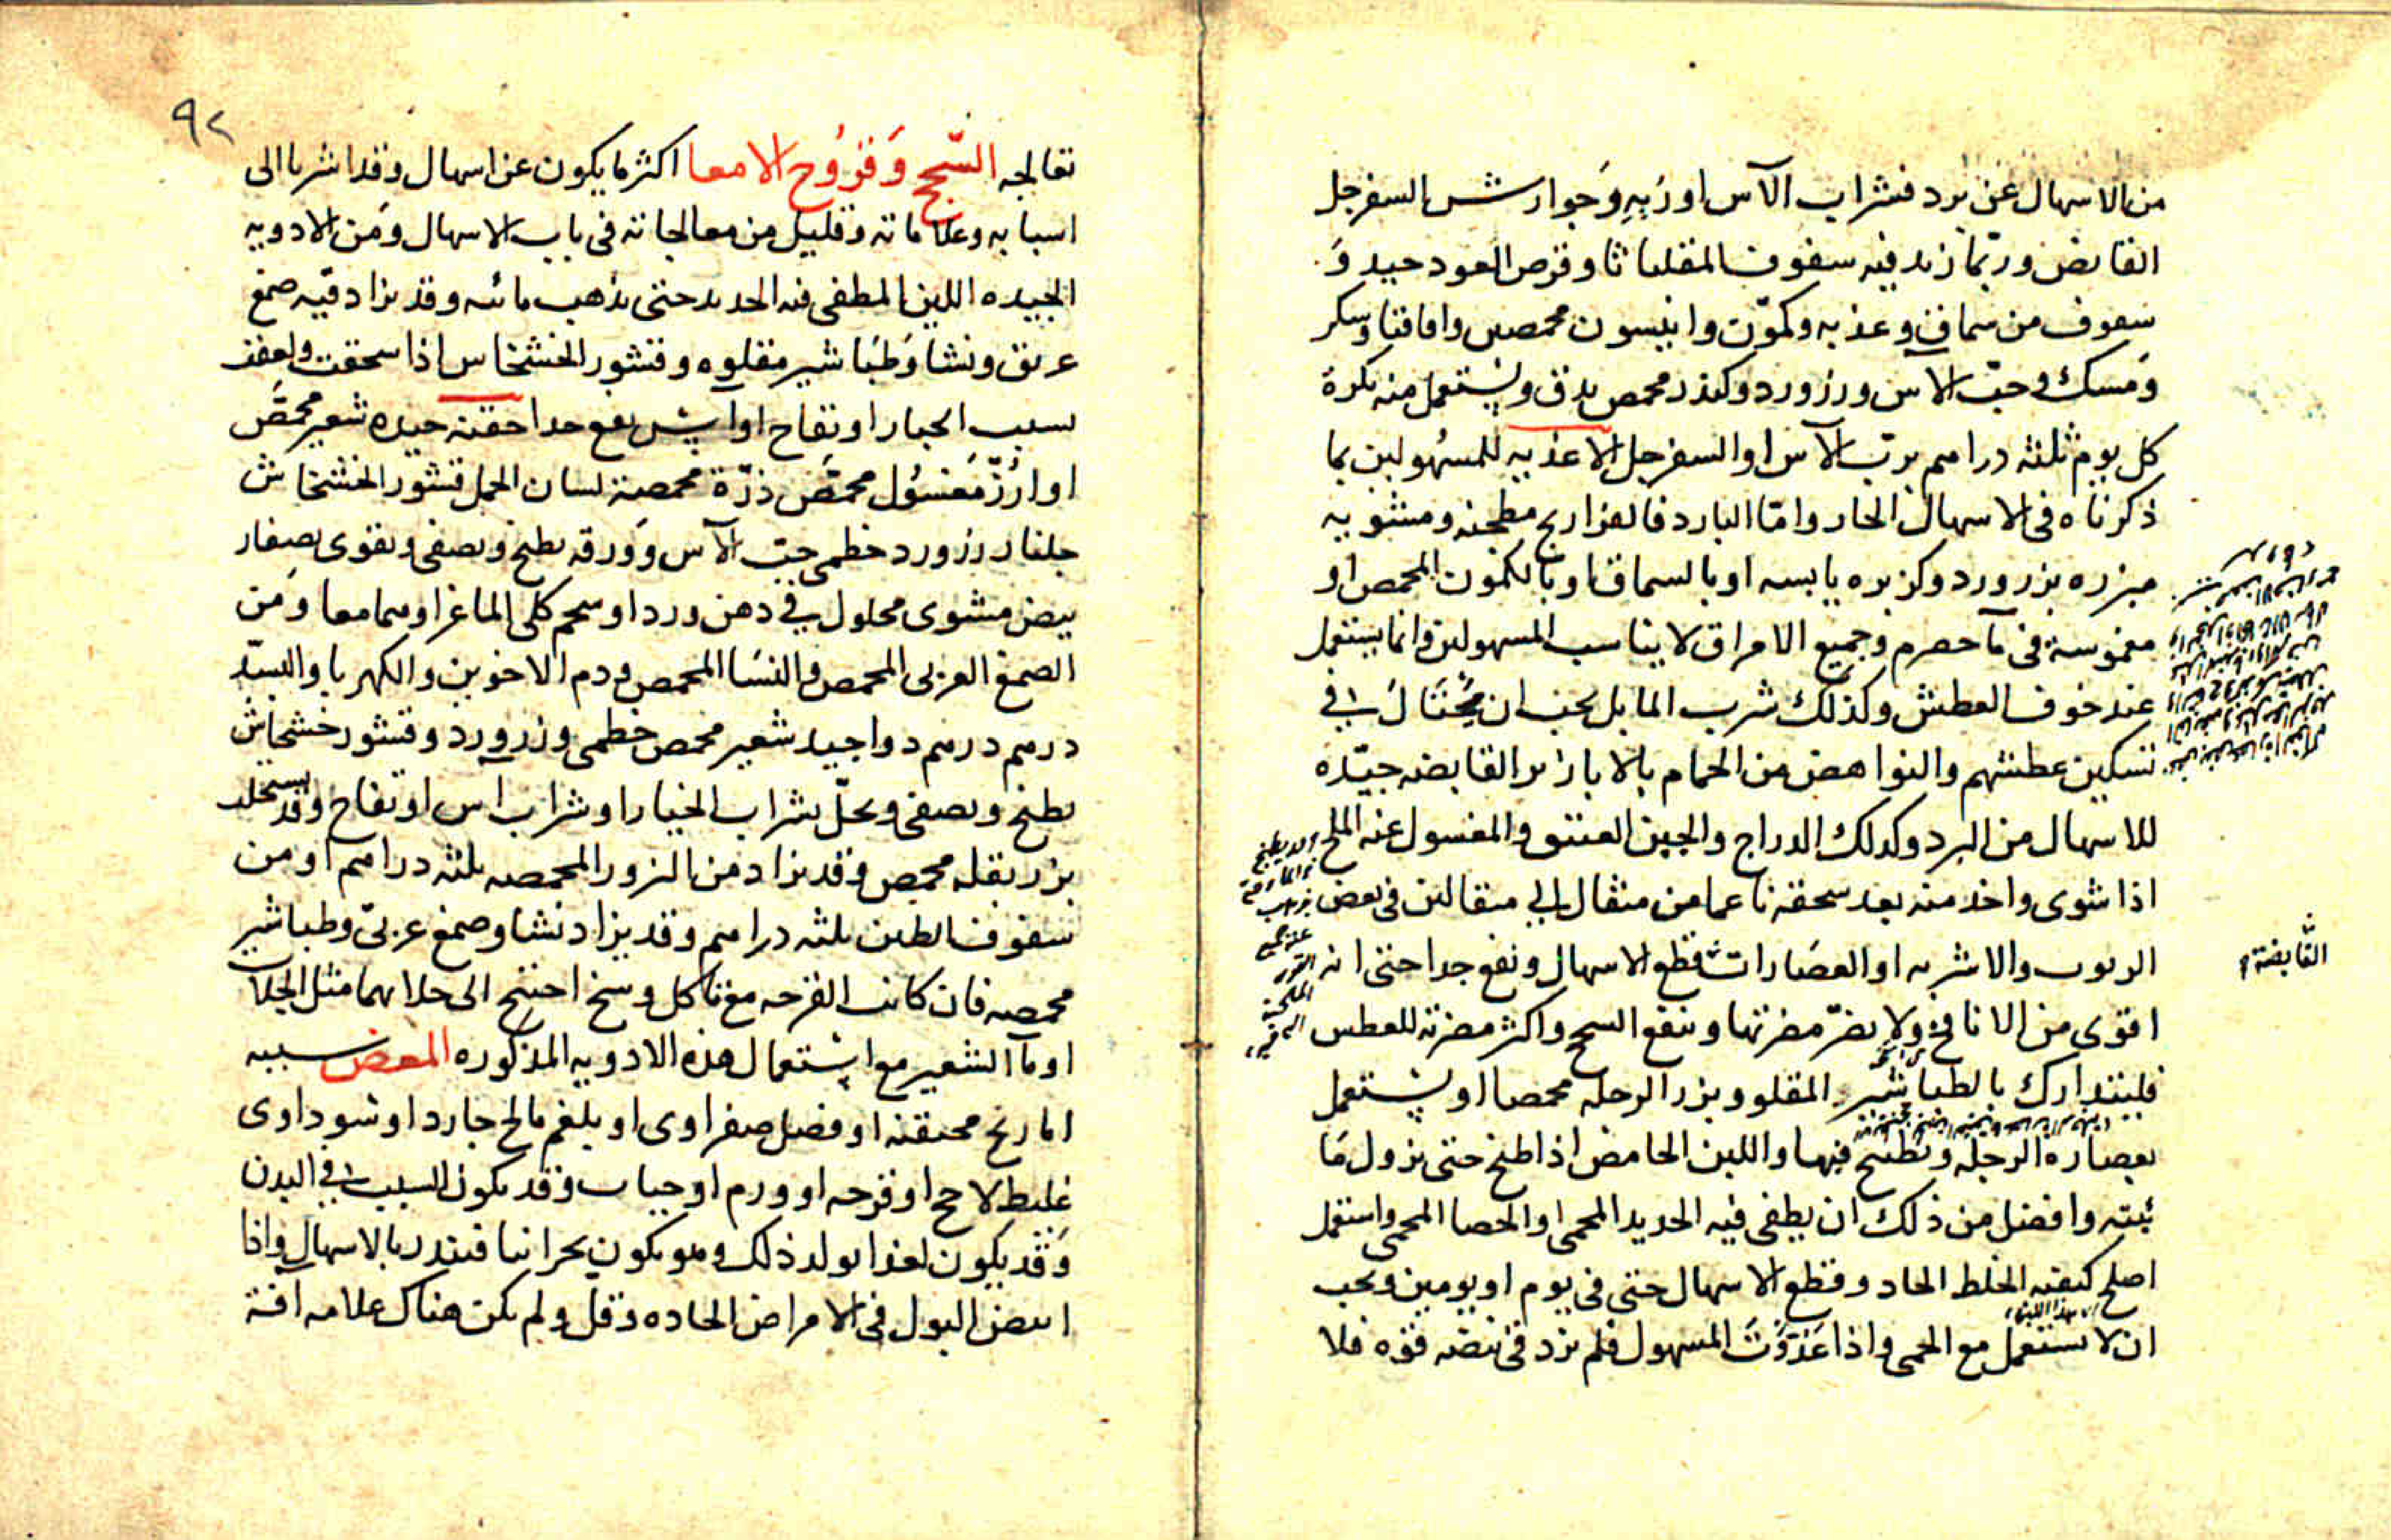 من الاسهال عن برد فشراب الآس او ربه وجوارش السفرجل
القابض وربما زيد فيه سفوف المقلياثا وقرص العود جيد و
سفوف من سماق وعذبه وكمون وانيسون محمصين واقاقيا وسكر
ومسك وحب الآس وزرورد وكندر محمص يدق ويستعمل منه بكرة
كل يوم ثلثه دراهم برب الآس او السفرجل الاغذيه للمسهولين بما
ذكرناه في الاسهال الحار واما البارد فالفراريج مطجنه ومشويه
مبزره بزرورد وكزبره يابسه او بالسماق او بالكمون المحمص او
مغموسة في مآ حصرم وجميع الامراق لا يناسب المسهولين وانما يستعمل
عند خوف العطش وكذلك شرب الما بل يجب ان يحتال في
تسكين عطشهم والنواهض من الحمام بالابازير القابضه جيده
للاسهال من البرد وكذلك الدراج والجبن العتيق والمغسول عنه الملح
اذا شوى واخذ منه بعد سحقه ناعما من مثقال الى مثقالين في بعض
الربوب والاشربه او العصارات قطع الاسهال ونفع جدا حتى انه
القابضة
اقوى من الانافح ولا يضر مضرتها وينفع السحج واكثر مضرته للعطش
فليتدارك بالطباشير المقلو وبزر الرجله محمصا او يستعمل
بعصاره الرجله ويطبخ فيها واللبن الحامض اذا طبخ حتى يزول ما
ئيته وافضل من ذلك ان يطفى فيه الحديد المحمى او الحصا المحمى واستعمل
اصلح كيفيه الخلط الحاد وقطع الاسهال حتى في يوم او يومين ويجب
هذا اللبن
ان لا يستعمل مع الحمى واذا غذوت المسهول فلم يزد في نبضه قوه فلا
٩٢
تعالجه السحج وقروح الامعا اكثر ما يكون عن اسهال وقد اشرنا الى
اسبابه وعلاماته وقليل من معالجاته في باب الاسهال ومن الادويه
الجيده اللبن المطفى فيه الحديد حتى يذهب مائه وقد يزاد فيه صمغ
عربي ونشا وطباشير مقلوه وقشور الخشخاش اذا سحقت ولعقت
بشراب الخيار او تفاح او آس نفع جدا حقنه جيده شعير محمص
او ارز مغسول محمص ذرة محمصة لسان الحمل قشور الخشخاش
جلنار زرورد خطمى حب الآس وورقه يطبخ ويصفى ويقوى بصفار
بيض مشوى محلول في دهن ورد او شحم كلى الماعز او هما معا ومن
الصمغ العربى المحمص والنشا المحمص ودم الاخوين والكهربا والبسد
درهم درهم دوا جيد شعير محمص خطمى وزرورد وقشور خشخاش
يطبخ ويصفى ويحل بشراب الخيار او شراب اس او تفاح وقد يستحلب
بزر بقله محمص وقد يزاد من البزور المحمصه ثلثه دراهم او من
سفوف الطين ثلثه دراهم وقد يزاد نشا وصمغ عربي وطباشير
محمصه فان كانت القرحه مع تاكل وسخ احتيج الى جلابها مثل الجلاب
او مآ الشعير مع استعمال هذه الادويه المذكوره المغص سببه
اما ريح محتقنه او فضل صفراوى او بلغم مالح حار رد او سوداوى
غليظ لاحج او قرحه او ورم او حيات وقد يكون السبب في البدن
وقد يكون لغذا يولد ذلك وهو يكون بحرانيا فينذر بالاسهال واذا
ابيض البول في الامراض الحاده وقل ولم يكن هناك علامه آفة